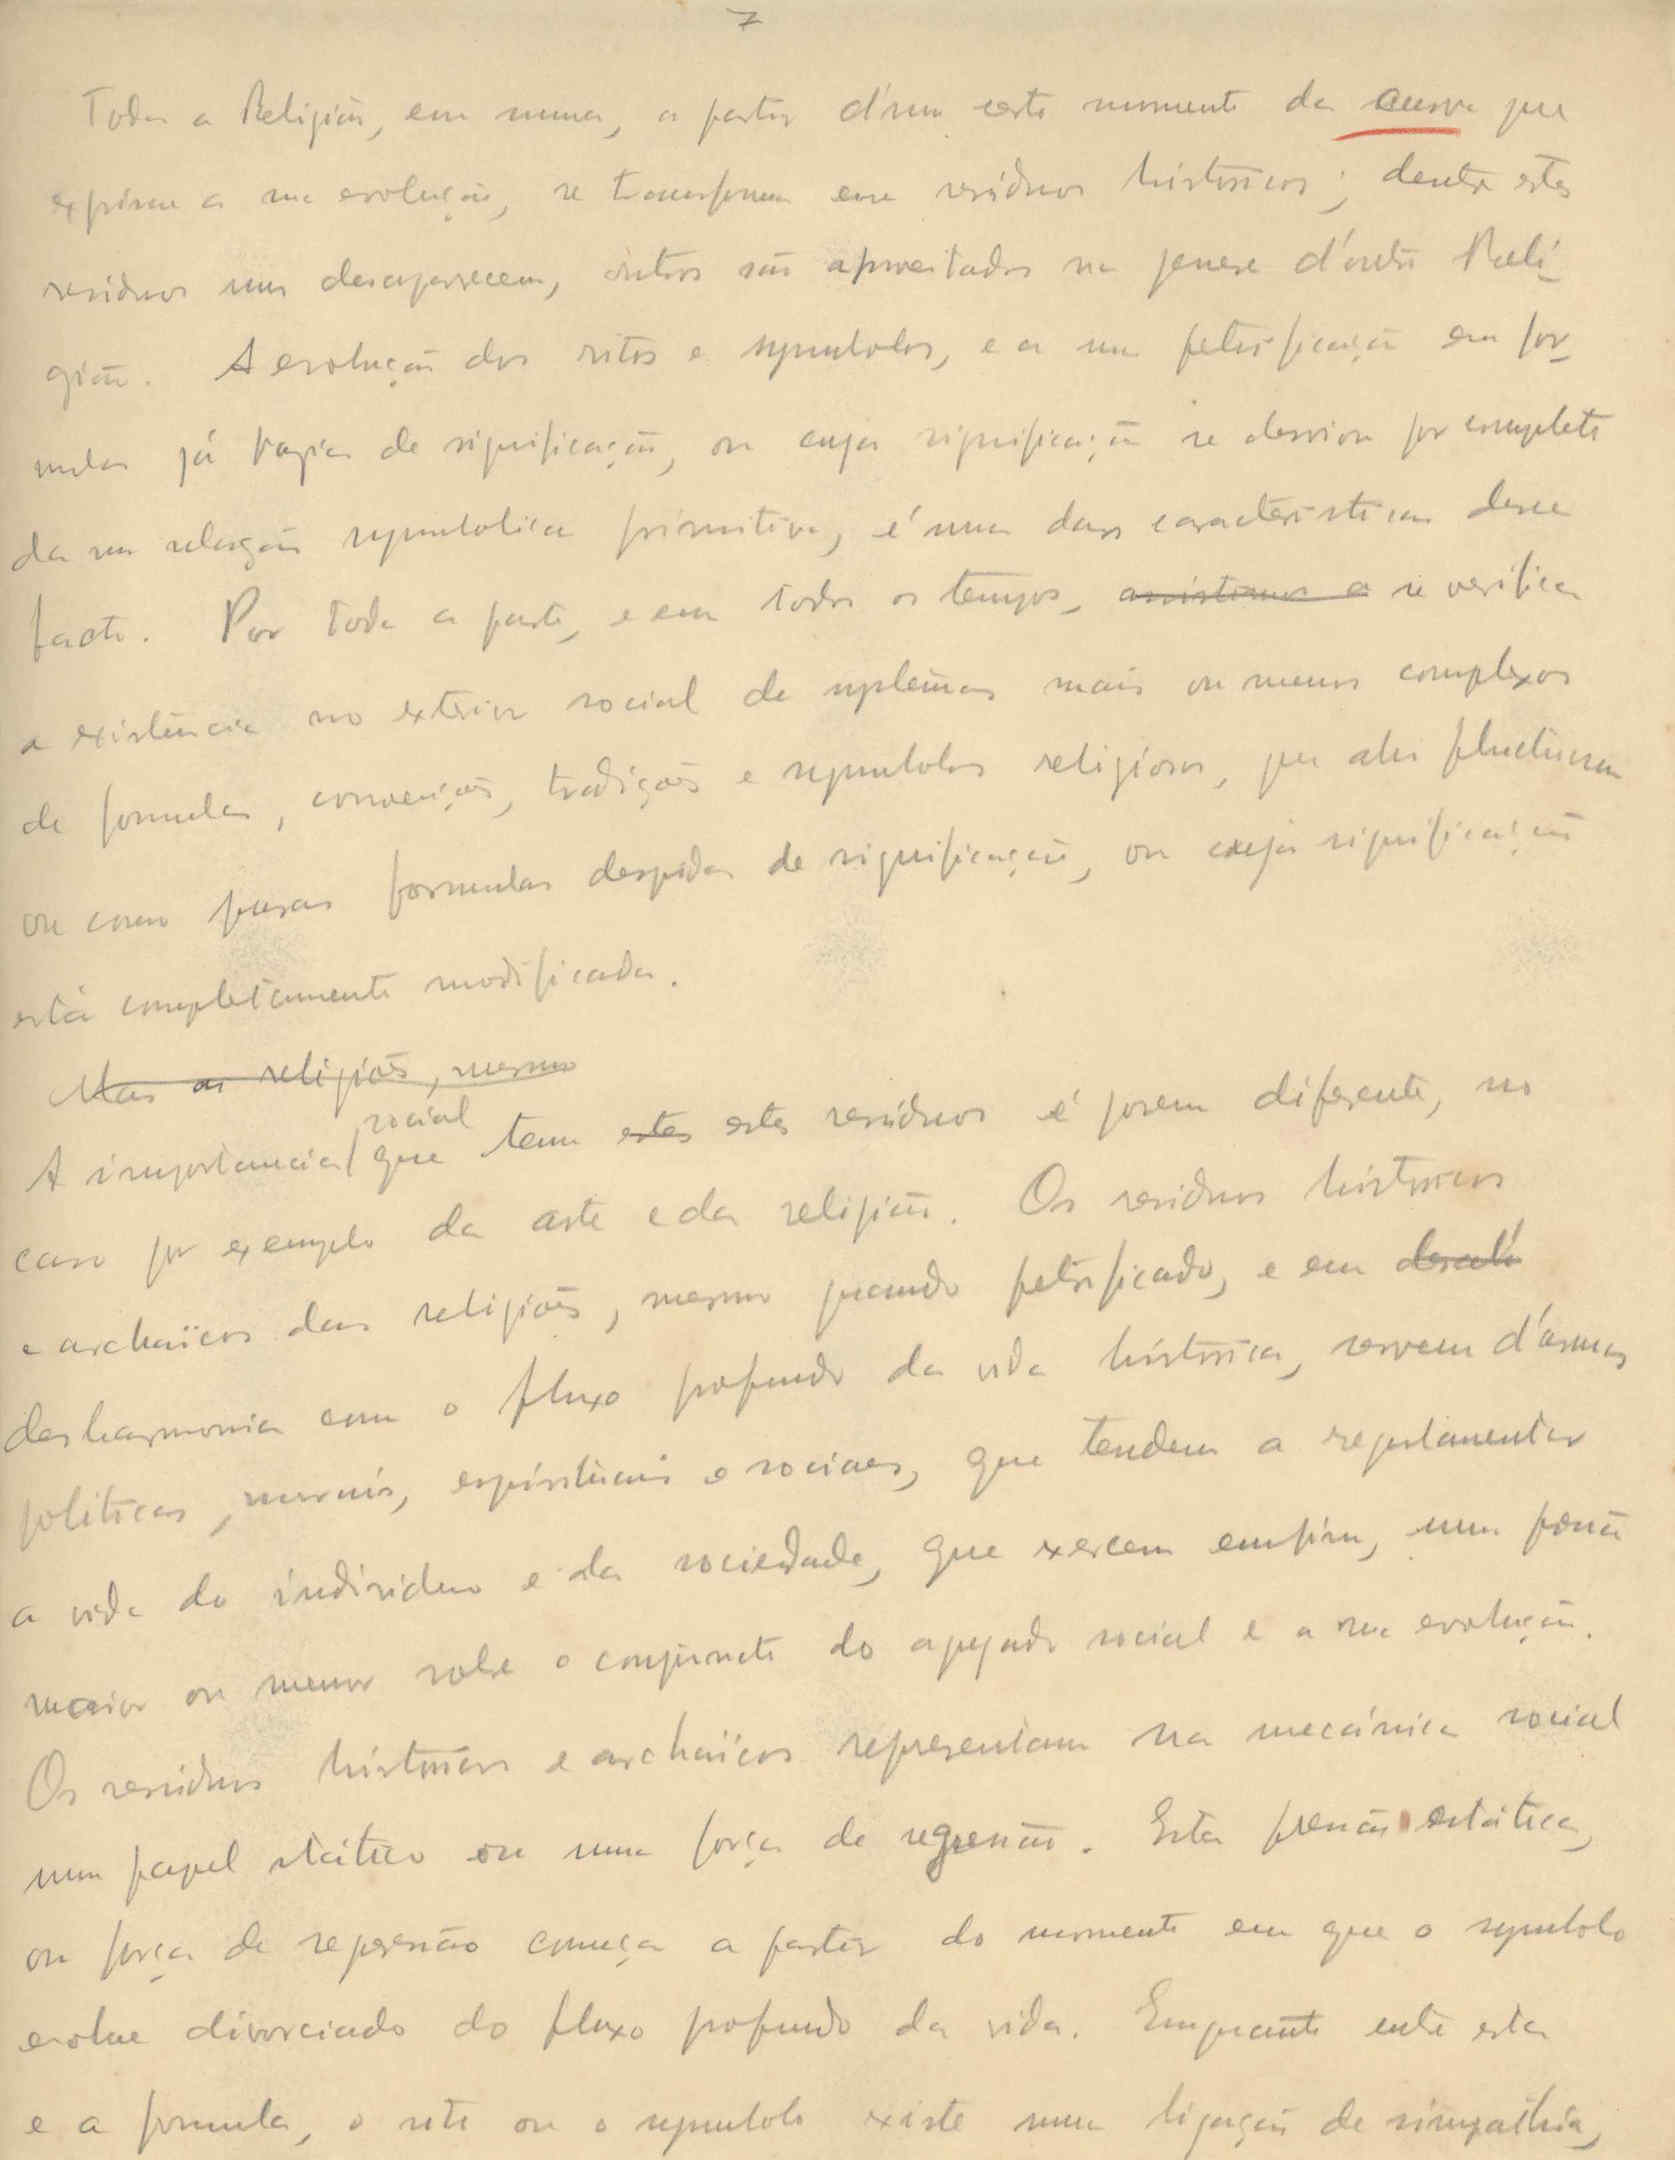 7
Toda a Religião, em suma, a partir d'um certo momento da curva que
exprime a sua evolução, se transforma em residuos historicos; dentre estes
residuos uns desaparecem, outros são aproveitados na genese d'outra Reli-
gião. A evolução dos ritos e symbolos, e a sua petrificação em for-
mulas já vazias de significação, ou cuja significação se desviou por completo
da sua relação symbolica primitiva, é uma das caracteristicas desse
facto. Por toda a parte, e em todos os tempos, assistimos a se verifica
a existência no exterior social de systemas mais ou menos complexos
de formulas, convenções, tradições e symbolos religiosos, que ahi fluctuam
ou como puras formulas despidas de significação, ou cuja significação
está completamente modificada.
Mas as religiões, mesmo
social
A importancia que tem estes estes residuos é porem diferente, no
caso por exemplo da arte e da religião. Os residuos historicos
e archaïcos das religiões, mesmo quando petrificados, e em
desharmonia com o fluxo profundo da vida historica, servem d'armas
politicas, moraìs, espirituais e sociaes, que tendem a regulamentar
a vida do individuo e da sociedade, que exercem emfim, uma pressão
maior ou menor sobre o conjuncto do agregado social e a sua evolução.
Os residuos historicos e archaïcos representam na mecánica social
um papel stático ou uma força de regressão. Esta pressão estática,
ou força de repressão começa a partir do momento em que o symbolo
evolue divorciado do fluxo profundo da vida. Emquanto entre esta
e a formula, o rito ou o symbolo existe uma ligação de simpathia,